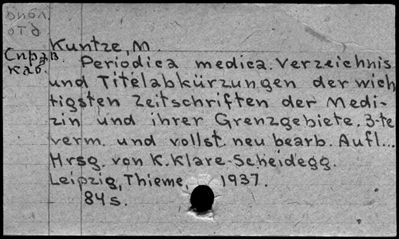 Библ.
отд
Справ.
каб.
Kuntze, M.
Periodica medica. Verzeichnis
und Titelabkürzungen der wich
tigsten Zeitschriften der Medi-
zin und ihrer Grenzgebiete. 3-te
verm. und vollst. neu bearb. Aufl...
Hrsg. von K. Klare-Scheidegg.
Leipzig, Thieme, 1937.
84 s.